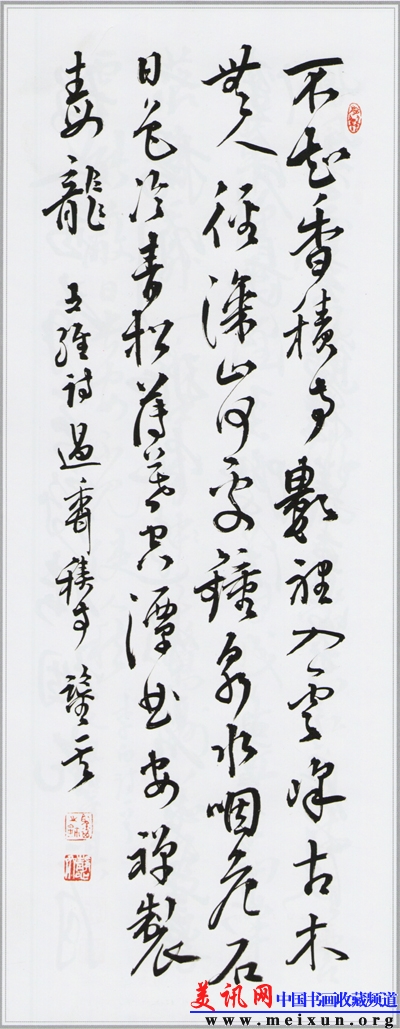 不知香積寺數裡入雲峰古木
無人徑深山何處鐘泉水咽危石
日色冷青松薄暮空潭曲安禪製
毒龍 王維詩過香積寺
美讯网 中国书画收藏频道
www.meixun.org